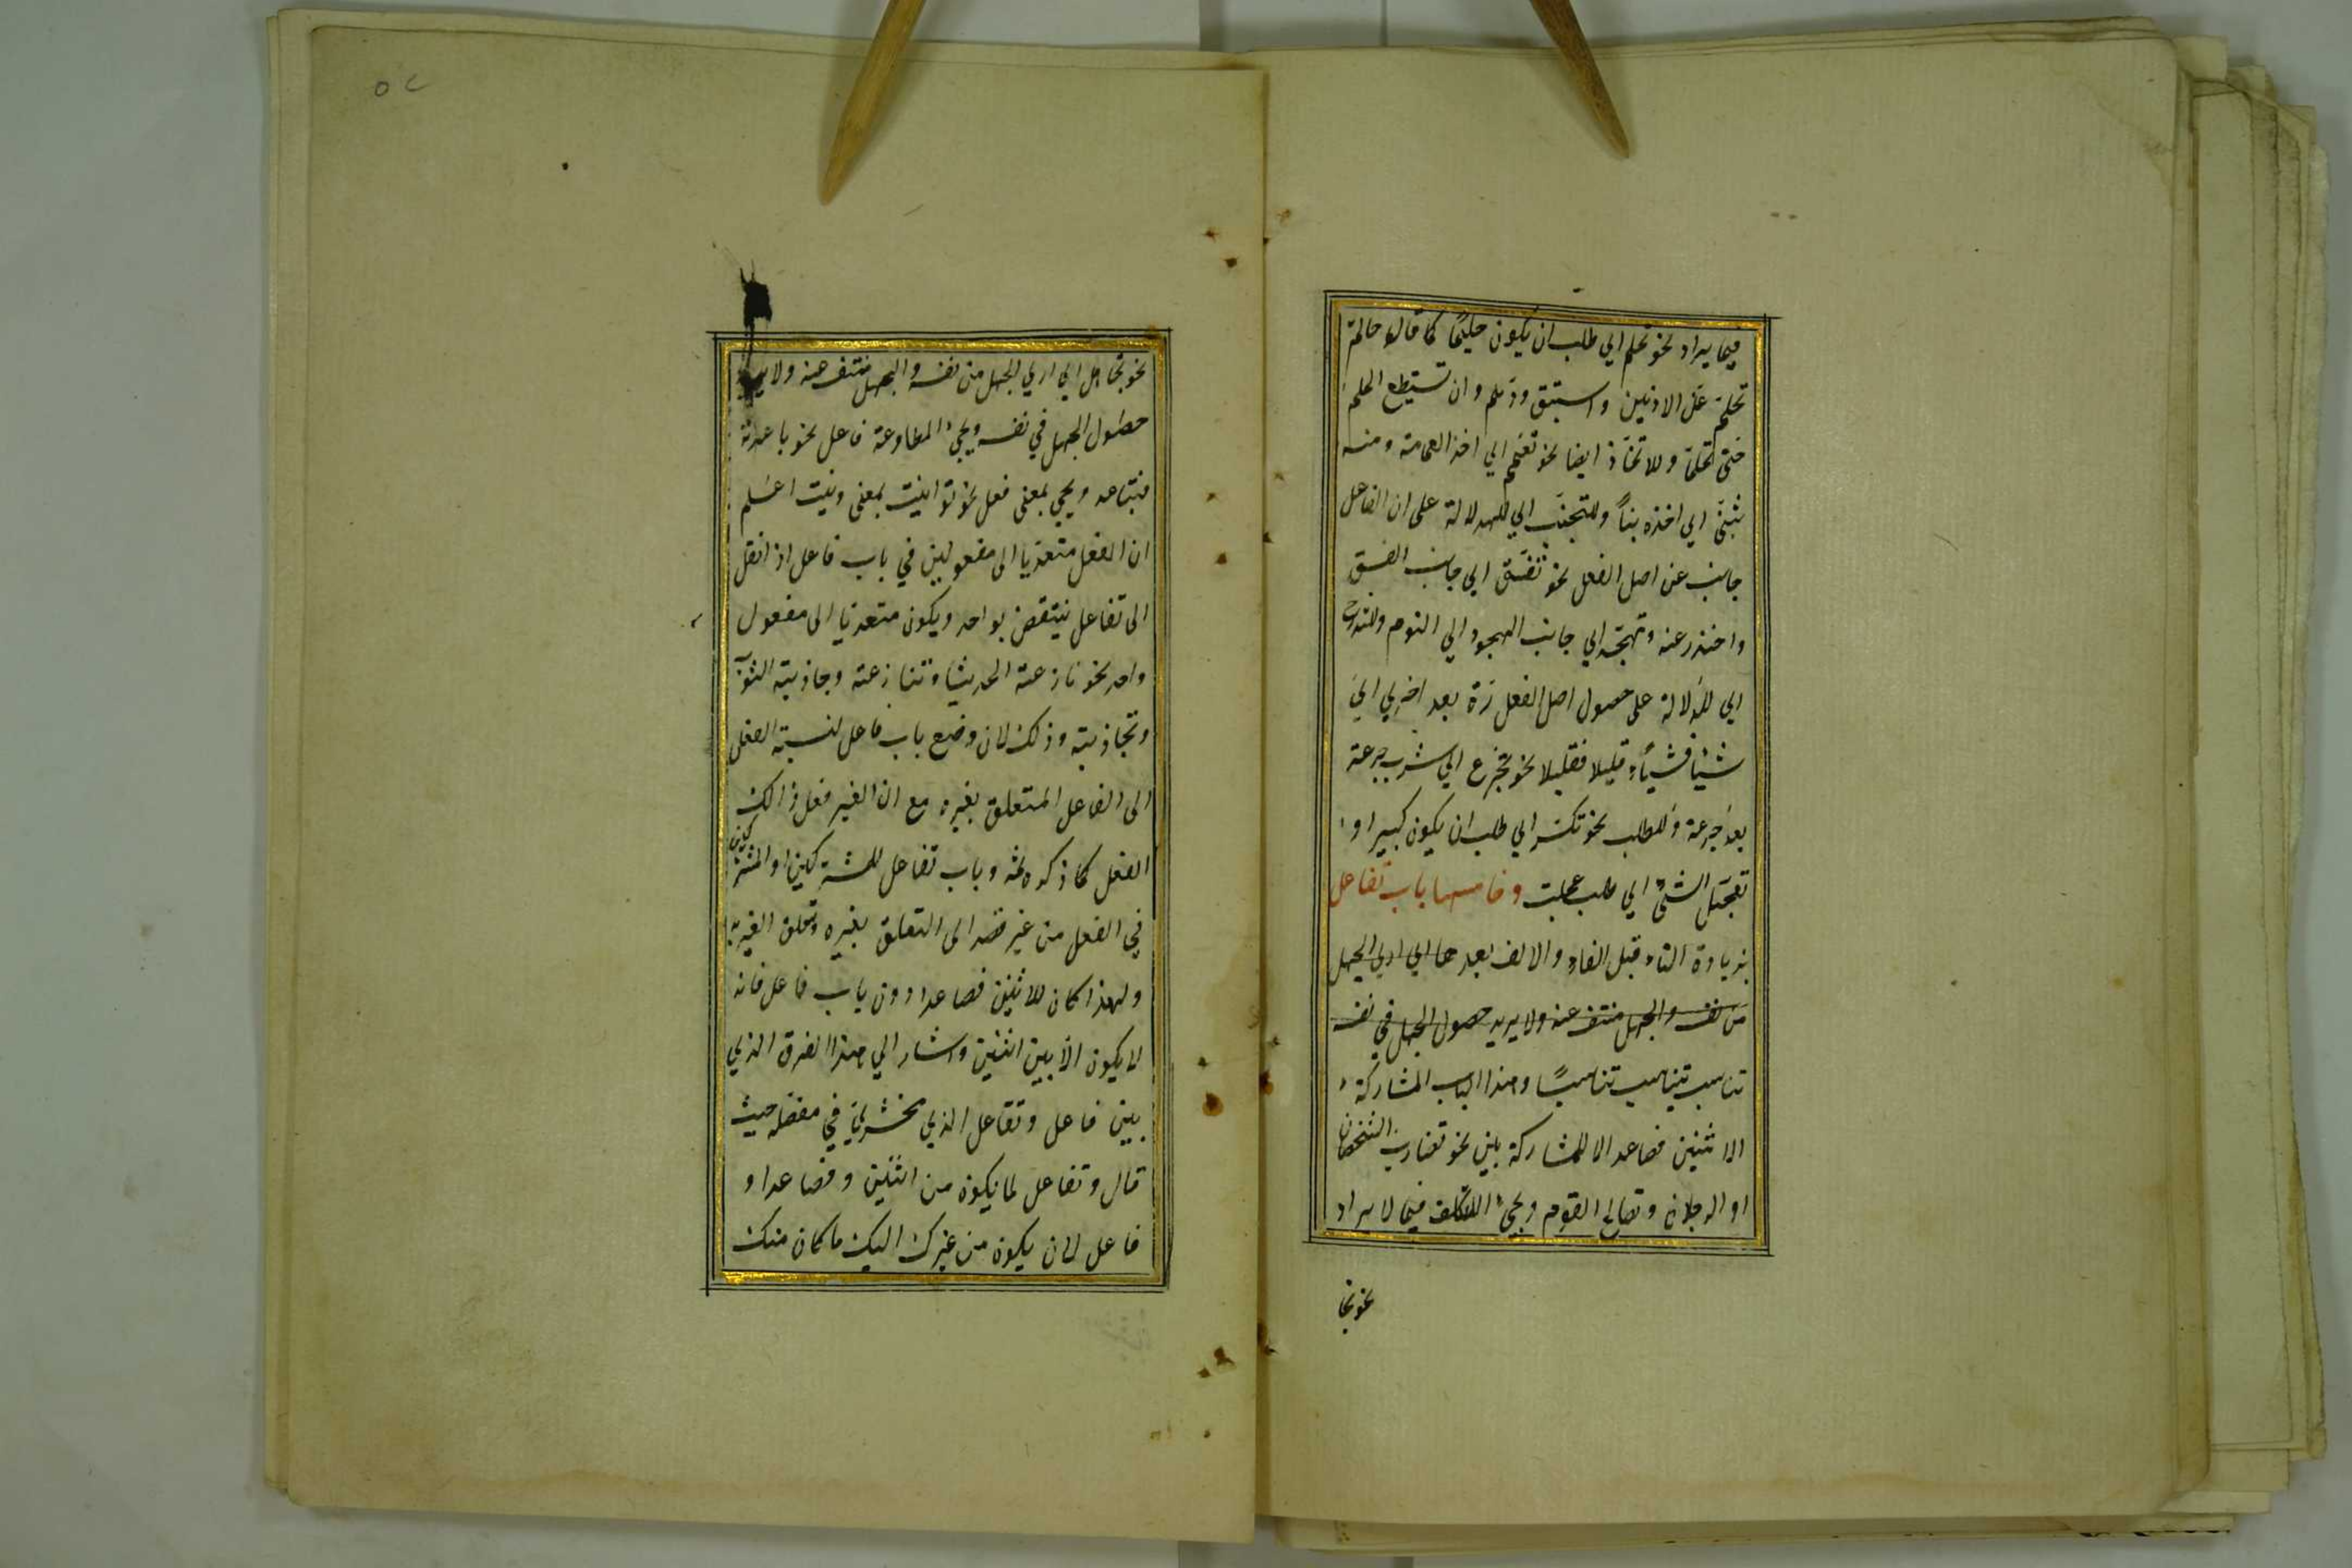 فيما يراد نحو تحلم اي طلب ان يكون حليما كما قال حاتم
تحلم عن الادنين واستبق ودهم وان تستطيع الحلم
حتى تحلما وللاتخاذ ايضا نحو تعمم اي اخذ العمامة ومنه
تبنى اي اخذه بناً وللتجنب اي للدلالة على ان الفاعل
جانب عن اصل الفعل نحو تفسق اي جانب الفسق
واحتذر عنه وتهجد اي جانب الهجود اي النوم وللتدرج
اي للدلالة على حصول اصل الفعل مرة بعد اخري اي
شيئا فشيأ وقليلا فقليلا نحو تجرع اي شرب جرعة
بعد جرعة وللطلب نحو تكبر اي طلب ان يكون كبيرا و
تعجل الشئ اي طلب عجلت وخامسها باب تفاعل
بزيادة التاء قبل الفاء والالف بعدها اي اري الجهل
من نفسه والجهل منتف عنه ولا يريد حصول الجهل في نفسه
تناسب يتناسب تناسبًا وهذا الباب المشاركة
الاثنين فصاعدا للمشاركة بين نحو تضارب الشخصان
او الرجلان وتصالح القوم ويجيء للتكلف فيما لا يراد
نحو تجا
٥٢
نحو تجاهل اي اري الجهل من نفسه والجهل منتف عنه ولا يريد
حصول الجهل في نفسه ويجيء المطاوعة فاعل نحو باعدته
فتباعد ويجيء بمعنى فعل نحو توانيت بمعنى ونيت اعلم
ان الفعل متعديا الى مفعولين في باب فاعل اذا نقل
الى تفاعل ينتقص بواحد ويكون متعديا الى مفعول
واحد نحو نازعته الحديث وتنازعته وجاذبته الثوب
وتجاذبته وذلك لان وضع باب فاعل لنسبة الفعل
الى الفاعل المتعلق بغيره مع ان الغير فعل ذالك
الفعل كما ذكره ثمه وباب تفاعل للمشتركين او المشتركين
في الفعل من غير قصد الى التعلق بغيره وتعلق الغير به
ولهذا كان للاثنين فصاعدا دون باب فاعل فانه
لا يكون الا بين اثنين واشار الي هذا الفرق الذي
بين فاعل وتفاعل الذي مخشري في مفصله حيث
قال وتفاعل لما يكون من اثنين وفصاعدا و
فاعل لان يكون من غيرك اليك ما كان منك